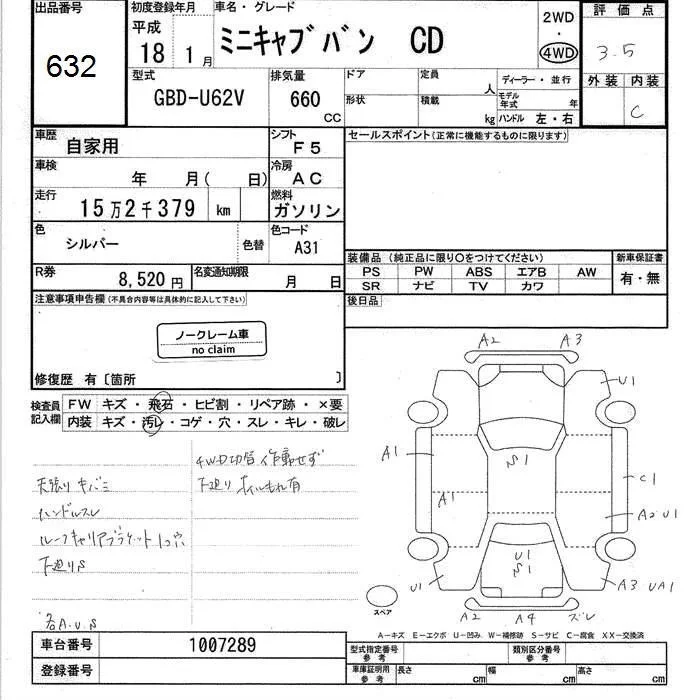 出品番号
632
初度登録年月
平成
18 1月
車名・グレード
ミニキャブバン CD
2WD
・
4WD
評価点
3.5
外装 内装
C
型式
GBD-U62V
排気量
660
CC
ドア
形状
定員
人
積載
kg
ディーラー・並行
モデル年式 年
ハンドル 左・右
車歴
自家用
シフト
F5
車検
年 月( 日)
冷房
AC
走行
15万2千379 km
燃料
ガソリン
色
シルバー
色替
色コード
A31
R券
8,520円
名変通知期限
月 日
セールスポイント(正常に機能するものに限ります)
装備品(純正品に限り○をつけてください)
PS PW ABS エアB AW
SR ナビ TV カワ
新車保証書
有・無
後日品
注意事項申告欄(不具合内容等は具体的に記入して下さい)
ノークレーム車
no claim
修復歴 有〔箇所 〕
検査員記入欄
FW キズ・飛石・ヒビ割・リペア跡・×要
内装 キズ・汚レ・コゲ・穴・スレ・キレ・破レ
4WD切替 作動せず
下廻り オイルもれ有
天張り キバミ
ハンドルスレ
ルーフキャリアブラケット 穴
下廻りS
各A.U.S
A2 A3
U1
A1
S1
C1
A1
A2 U1
U1
S1
U1
A3 UA1
A2 A4 ズレ
スペア
A―キズ E―エクボ U―凹み W―補修跡 S―サビ C―腐食 XX―交換済
車台番号
1007289
登録番号
型式指定番号
参考
類別区分番号
参考
車庫証明用
参考
長さ cm
幅 cm
高さ cm